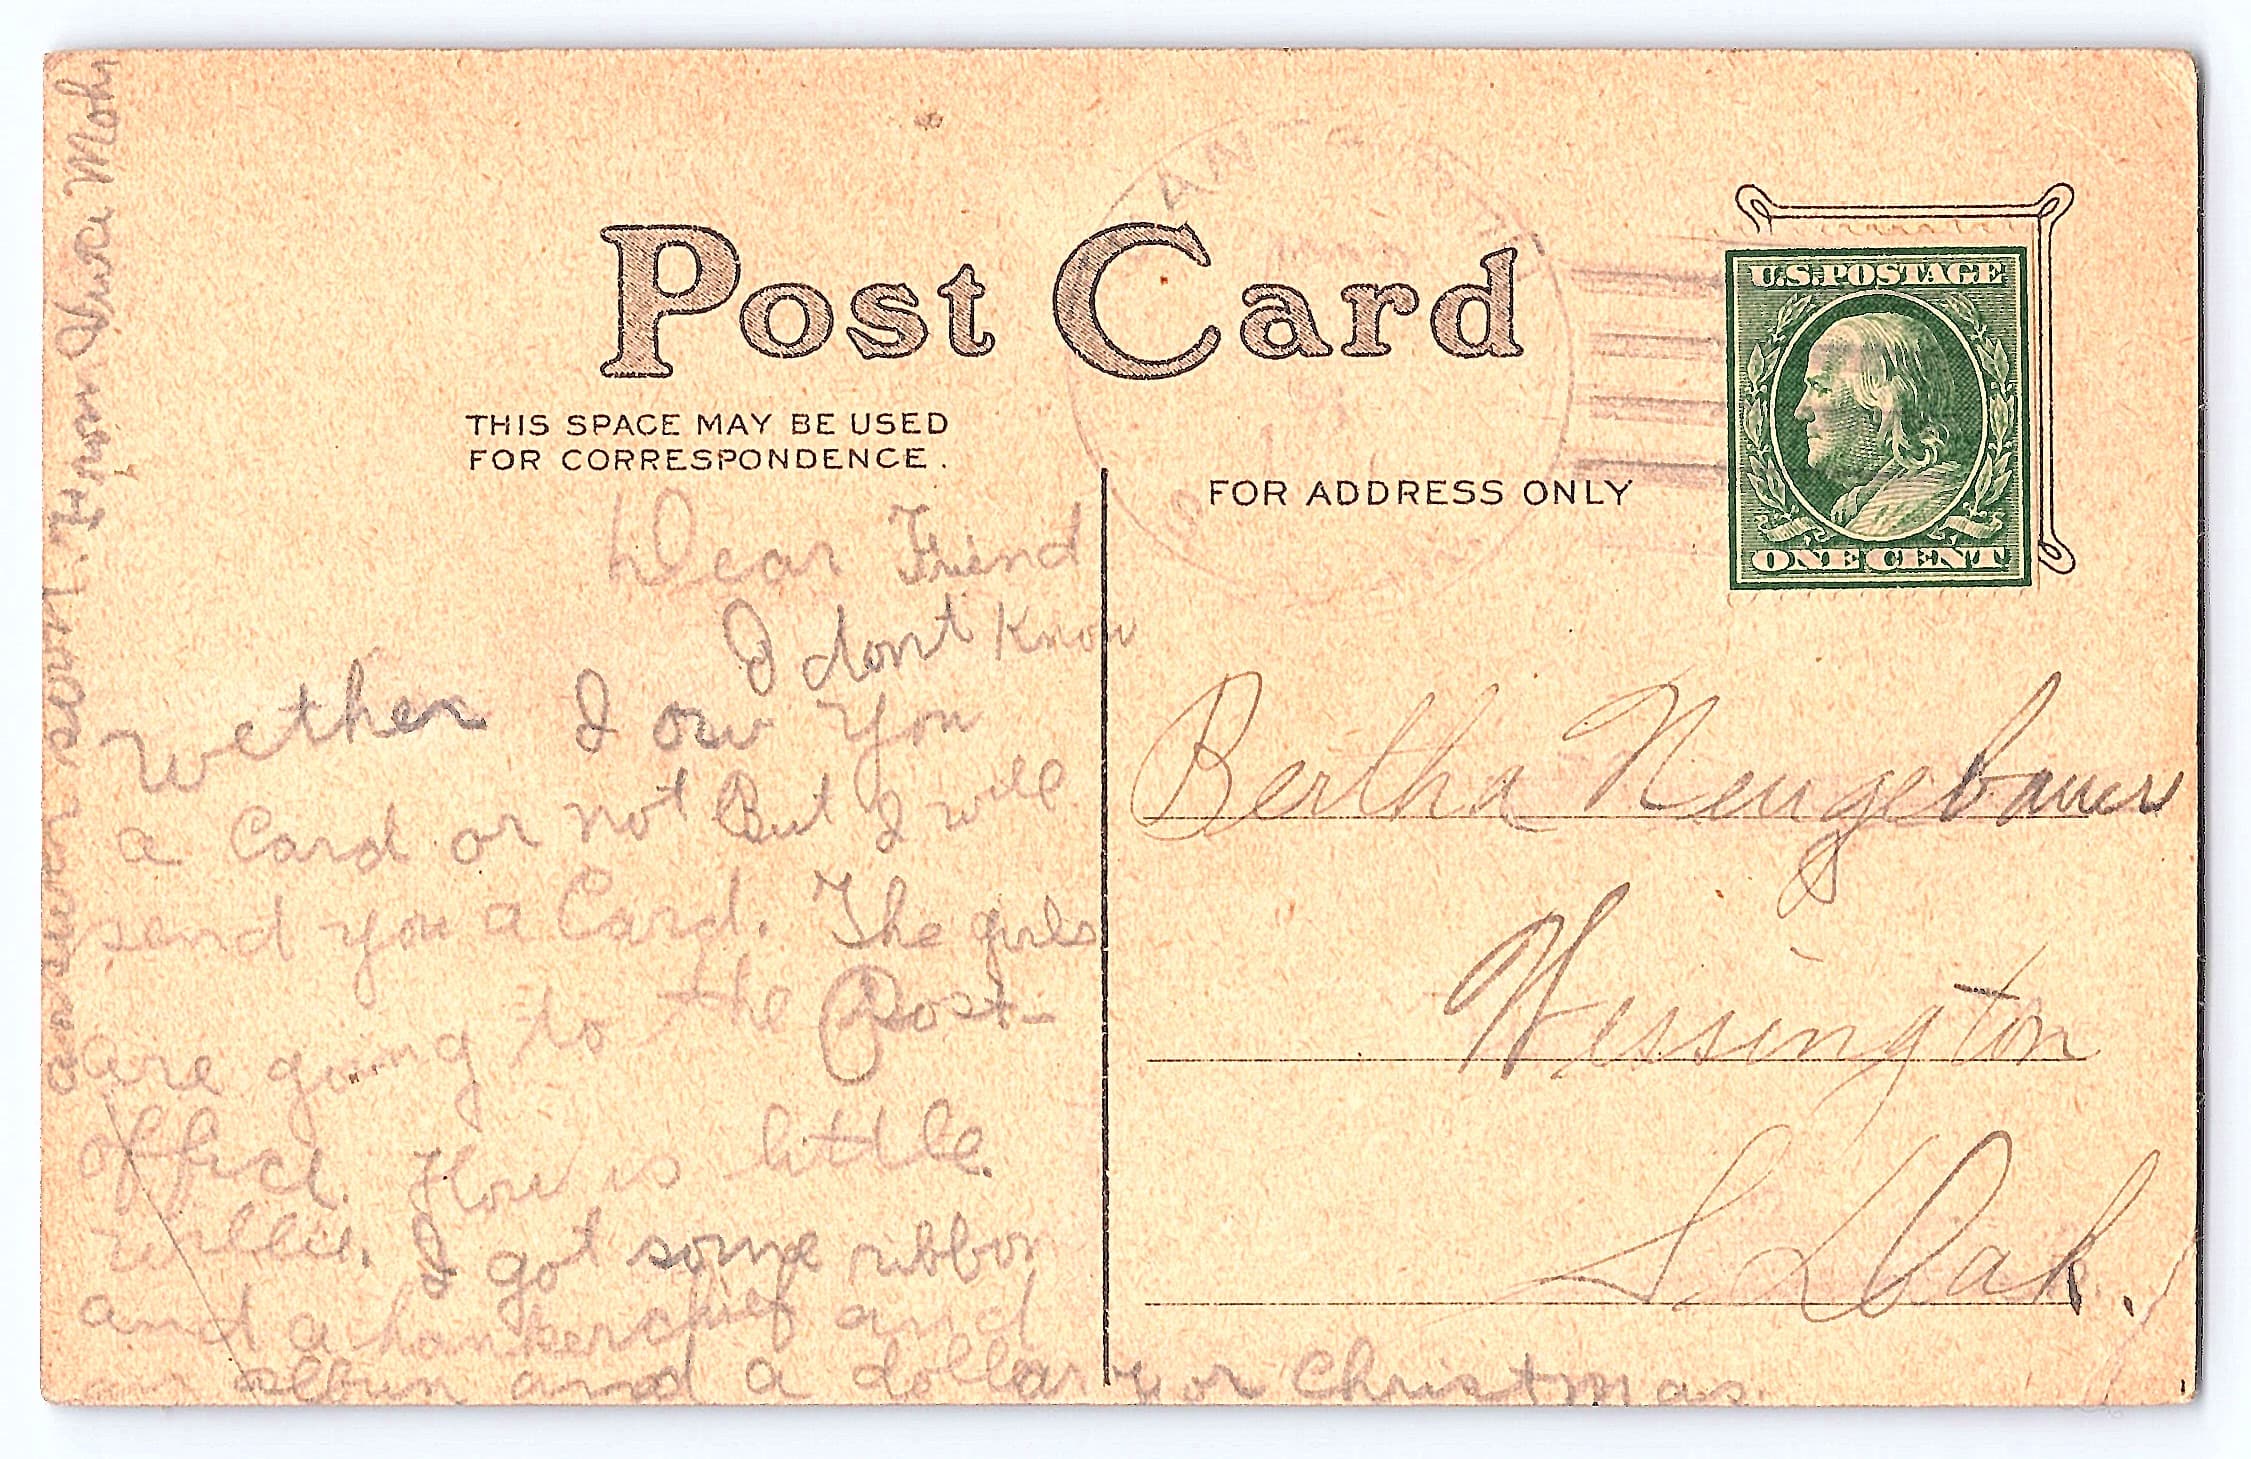 Post Card
THIS SPACE MAY BE USED
FOR CORRESPONDENCE.
FOR ADDRESS ONLY
U.S. POSTAGE
ONE CENT
Dear Friend
I dont know
Wether I ow you
a Card or not But I will
send you a Card. The girls
are going to the Post-
office. How is little
willie. I got some ribbon
and a hankerchief and
an album and a dollar for Christmas.
answer soon. From Viva Mohr
Bertha Neugebauer
Wessington
S. Dak.